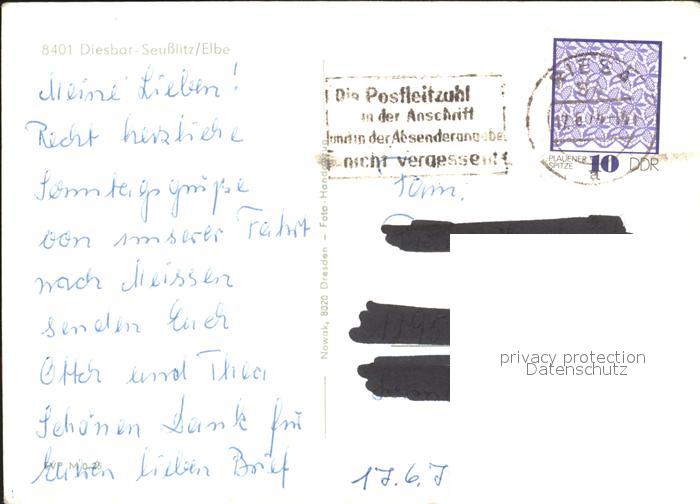 8401 Diesbar-Seußlitz/Elbe
Meine Lieben!
Recht herzliche
Sonntagsgrüße
von unserer Fahrt
nach Meissen
senden Euch
Otto und Thea
Schönen Dank für
Euren lieben Brief
Nowak, 8020 Dresden — Foto-Handabzug
Die Postleitzahl
in der Anschrift
und in der Absenderangabe
nicht vergessen!
RIESA
PLAUENER SPITZE 10 DDR
Fam.
17.6.7
privacy protection
Datenschutz